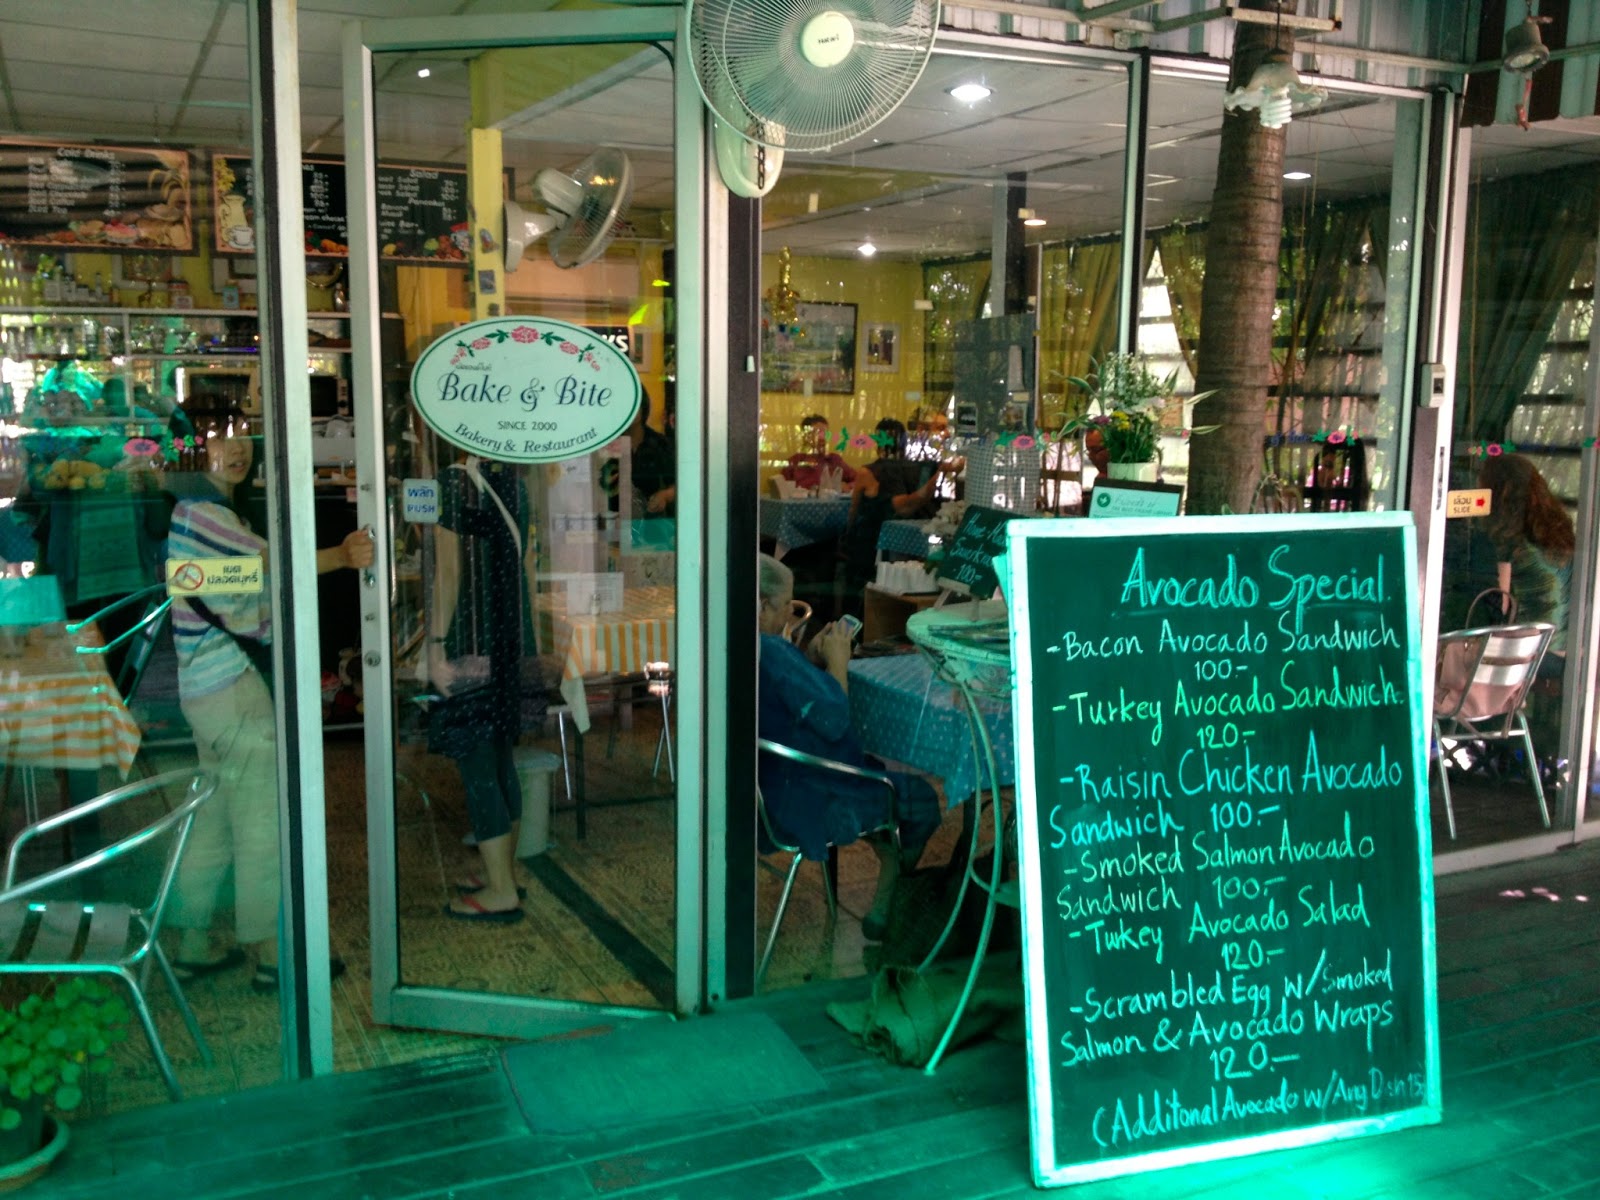 Cold Drinks
Iced Tea
Salad
Pancakes
Bake & Bite
SINCE 2000
Bakery & Restaurant
ผลัก
PUSH
เขต
ปลอดบุหรี่
เลื่อน
SLIDE
100.-
Avocado Special.
-Bacon Avocado Sandwich
100.-
-Turkey Avocado Sandwich.
120.-
-Raisin Chicken Avocado
Sandwich 100.-
-Smoked Salmon Avocado
Sandwich 100.-
-Turkey Avocado Salad
120.-
-Scrambled Egg w/Smoked
Salmon & Avocado Wraps
120.-
(Additonal Avocado w/Any Dish 15